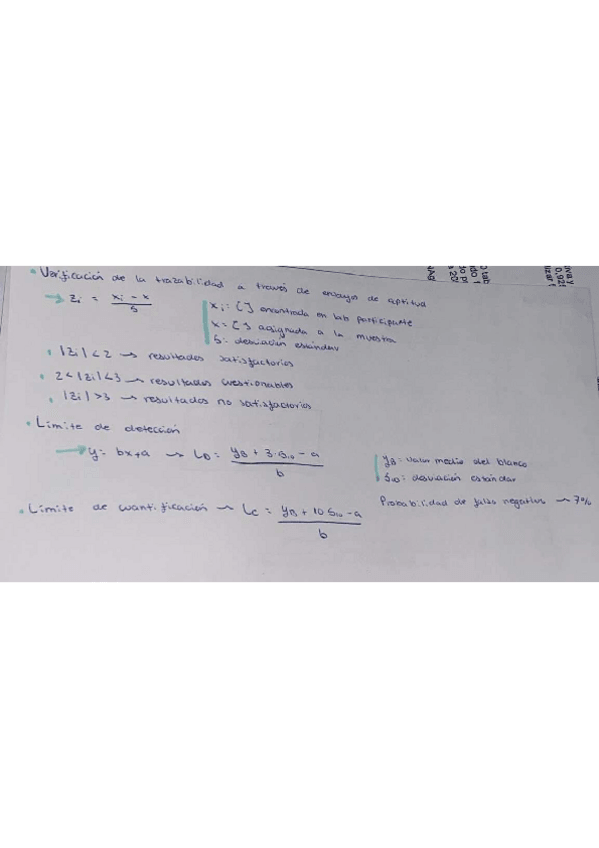 • Verificación de la trazabilidad a través de ensayos de aptitud
→ Zi = (xi - x) / s
xi: [ ] encontrada en lab participante
x: [ ] asignada a la muestra
s: desviación estándar
• |Zi| < 2 → resultados satisfactorios
• 2 < |Zi| < 3 → resultados cuestionables
• |Zi| > 3 → resultados no satisfactorios
• Límite de detección
→ y = bx + a → LD = (yB + 3·s10 - a) / b
yB: valor medio del blanco
s10: desviación estándar
• Límite de cuantificación → LC = (yB + 10 s10 - a) / b
Probabilidad de falso negativo → 7%